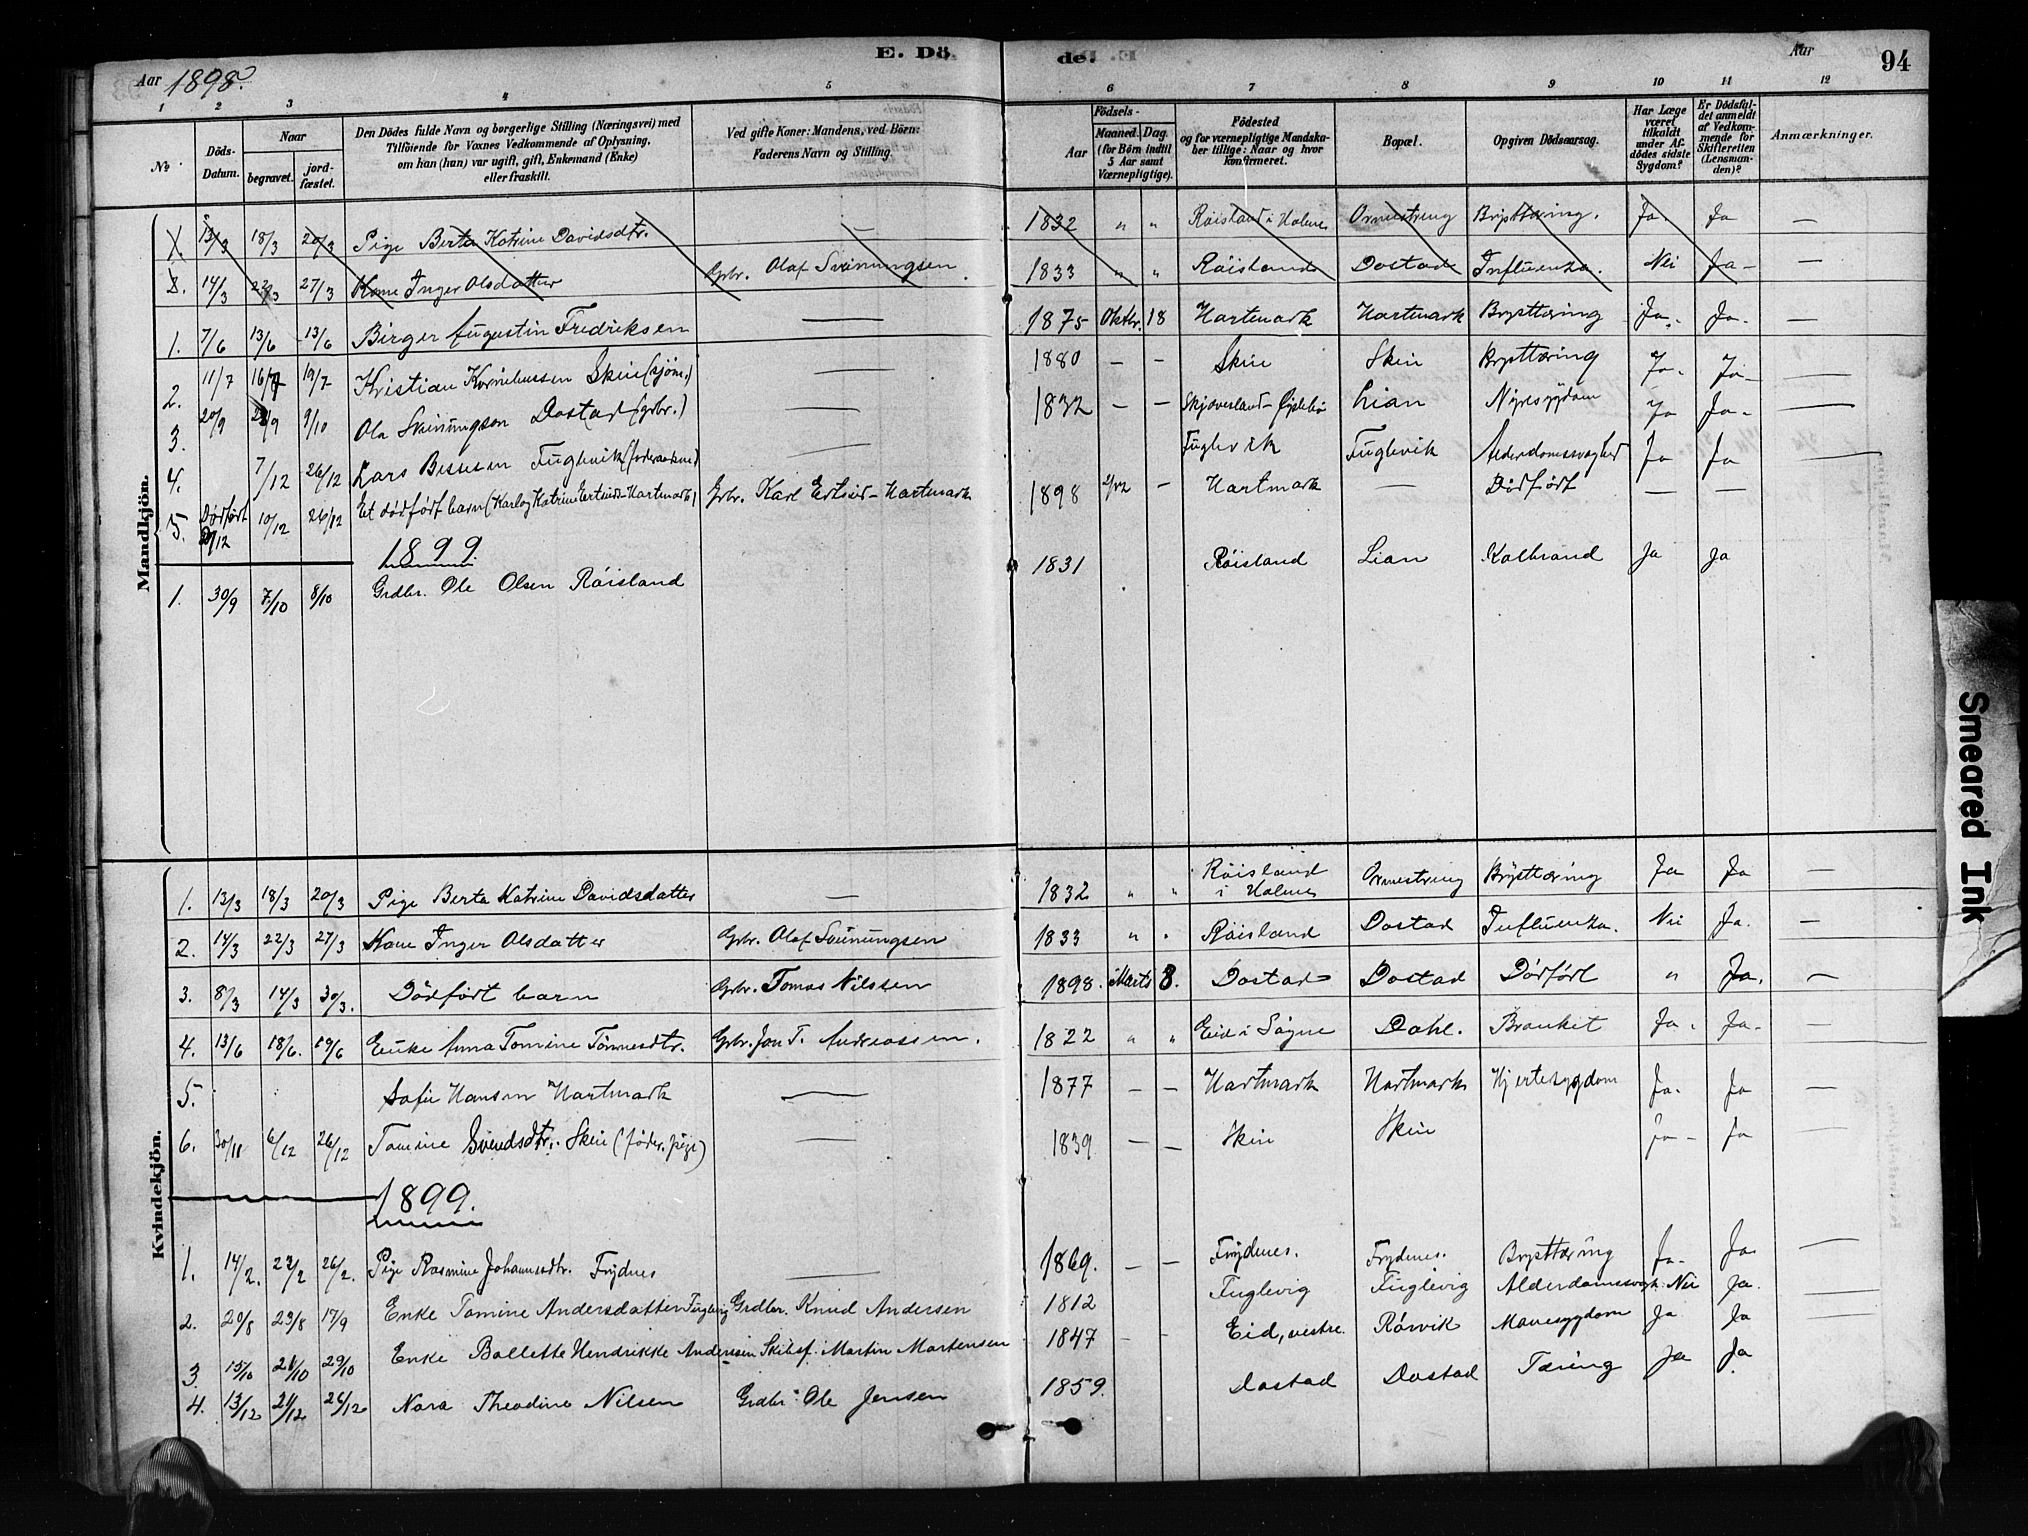 E. Dö- de.
Aar 1898. Aar 94
1 2 3 4 5 6 7 8 9 10 11 12
№ Döds-Datum. Naar begravet. jord-fæstet. Den Dödes fulde Navn og borgerlige Stilling (Næringsvei) med Tilföiende for Voxnes Vedkommende af Oplysning, om han (hun) var ugift, gift, Enkemand (Enke) eller fraskilt. Ved gifte Koner: Mandens, ved Börn: Faderens Navn og Stilling. Födsels- Aar Maaned. Dag. (for Börn indtil 5 Aar samt Værnepligtige). Födested og for værnepligtige Mandskaber tillige: Naar og hvor konfirmeret. Bopæl. Opgiven Dödsaarsag. Har Læge været tilkaldt under Afdödes sidste Sygdom? Er Dödsfaldet anmeldt af Vedkommende for Skifteretten (Lensmanden)? Anmærkninger.
Mandkjön.
13/3 18/3 20/3 Pige Berta Katrine Davidsdtr. — 1832 " " Röisland i Holme Ormestring Brysttæring. Ja. Ja —
14/3 22/3 27/3 Kone Inger Olsdatter Gbr. Olaf Sveinungsen. 1833 " " Röisland Dostad Influenza. Nei Ja —
1. 7/6 13/6 13/6 Birger Augustin Fredriksen — 1875 Oktbr. 18 Hartmark Hartmark Brysttæring Ja. Ja. —
2. 11/7 16/7 19/7 Kristian Korneliussen Skeie (sjöm.) — 1880 — — Skeie Skeie Brysttæring Ja. Ja —
3. 20/9 28/9 9/10 Ola Sveinungson Dostad (grbr.) — 1832 — — Skjæveland - Öislebö Lian Nyresygdom Ja Ja. —
4. 7/12 26/12 Lars Fuglevik — Fuglevik Fuglevik Alderdomssvaghed Ja Ja —
5. Dödfört 12 10/12 26/12 Et dödfört barn (Karl og Katrine Hartmark) Gbr. Karl - Hartmark 1898 2/12 — Hartmark — Dödfört — —
1899.
1. 30/9 7/10 8/10 Grdbr. Ole Olsen Röisland 1831 Röisland Lian Kolbrand Ja Ja
Kvindekjön.
1. 13/3 18/3 20/3 Pige Berta Katrine Davidsdatter — 1832 " " Röisland i Holme Ormestring Brysttæring Ja Ja —
2. 14/3 22/3 27/3 Kone Inger Olsdatter Gbr. Olaf Sveinungsen 1833 " " Röisland Dostad Influenza. Nei Ja. —
3. 8/3 14/3 30/3. Dödfört barn Gbr. Tomas Nilsen 1898. Marts 8. Dostad Dostad Dödfört " Ja. —
4. 13/6 18/6. 19/6 Enke Anna Tomine Tönnesdtr. Gbr. Jon T. Andreassen. 1822 " " Eid i Sögne Dahl. Bronkit Ja. Ja. —
5. Sofie Hansen Hartmark — 1877 — — Hartmark Hartmark Hjertesygdom Ja. Ja —
6. 30/11 6/12 26/12 Tomine Svendsdtr. Skeie (föder. pige) — 1839 — — Skeie Skeie Ja — Ja —
1899.
1. 14/2. 23/2 26/2. Pige Rasmine Johannesdtr. Frydnes — 1869. — — Frydenes. Frydenes. Brysttæring Ja. Ja. —
2. 20/8 23/8 17/9 Enke Tomine Andersdatter Fuglevig Grdbr. Knud Andersen 1812 Fuglevig Fuglevig Alderdomssvagh. Nei Ja. —
3. 15/10 21/10 29/10 Enke Bollette Hendrikke Andersen Skibsf. Martin Mortensen 1847 - - Eid, vestre. Rörvik Mavesygdom Ja Ja —
4. 13/12 21/12 26/12 Nora Theodine Nilsen Grdbr. Ole Jensen 1859. Dostad Dostad Tæring Ja Ja
Smeared Ink